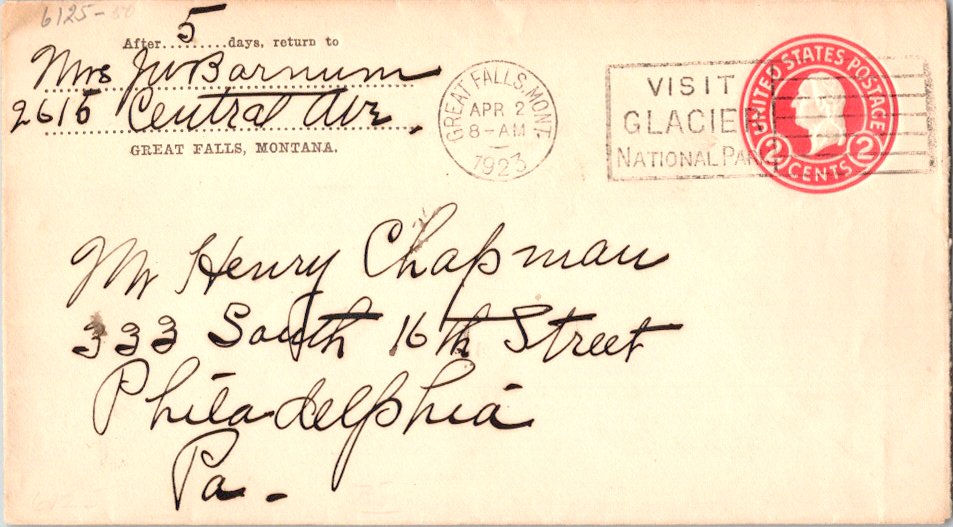 6125-50
After 5 days, return to
Mrs JW Barnum
2615 Central Ave.
GREAT FALLS, MONTANA.
GREAT FALLS, MONT.
APR 2
8-AM
1923
VISIT
GLACIER
NATIONAL PARK
UNITED STATES POSTAGE
2 CENTS 2
Mr Henry Chapman
333 South 16th Street
Philadelphia
Pa.